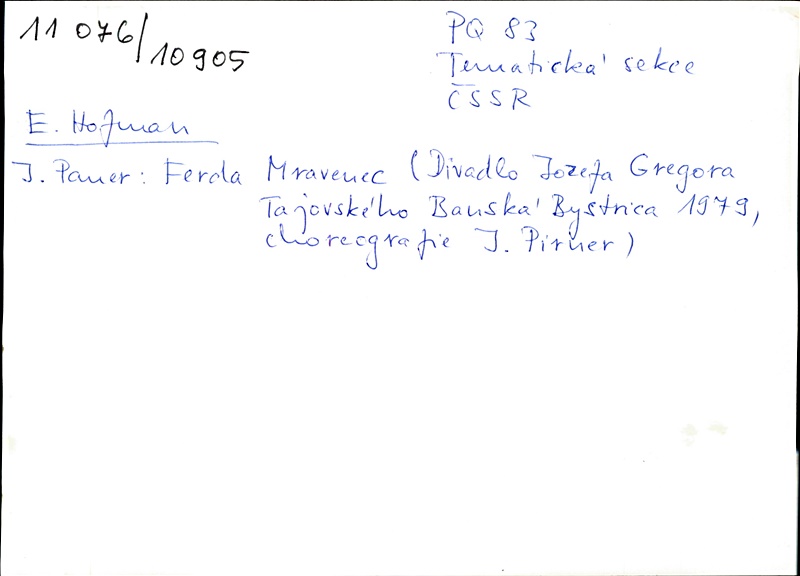 11 076/10905
PQ 83
Tematická sekce
ČSSR
E. Hofman
J. Pauer: Ferda Mravenec (Divadlo Jozefa Gregora
Tajovského Banská Bystrica 1979,
choreografie J. Pirner)